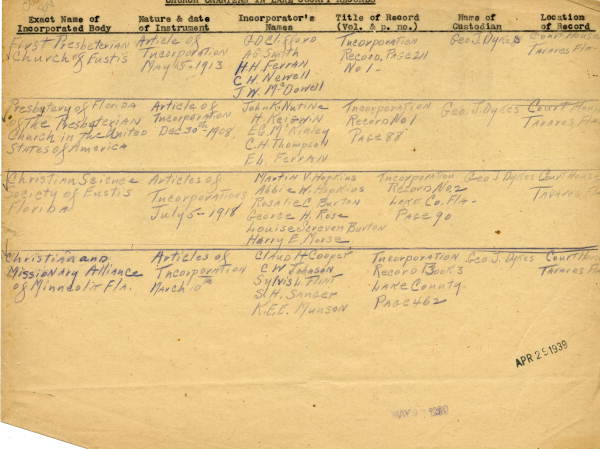 CHURCH CHARTERS IN LAKE COUNTY RECORDS
Exact Name of Incorporated Body
Nature & date of Instrument
Incorporator's Names
Title of Record (Vol. & p. no.)
Name of Custodian
Location of Record
First Presbyterian
Church of Eustis
Article of
Incorporation
May 15-1913
G.D. Clifford
A.G. Smith
H.H. Ferran
C.H. Newell
J.W. McDowell
Incorporation
Record, Page 211
No 1-
Geo. J. Dykes
Court House
Tavares Fla-
Presbytery of Florida
of the Presbyterian
Church in the United
States of America
Article of
Incorporation
Dec 30th 1908
John K. Nutine
H. Keigwin
E.G. McKinley
C.H. Thompson
E.L. Ferran
Incorporation
Record No 1
Page 88
Geo. J. Dykes
Court House
Tavares Fla.
Christian Science
Society of Eustis
Florida
Articles of
Incorporations
July 5- 1918
Martin V. Hopkins
Abbie W. Hopkins
Rosalie C. Burton
George H. Rose
Louise Burton
Harry E. Morse
Incorporation
Record No. 2
Lake Co. Fla-
Page 90
Geo J. Dykes
Court House
Tavares Fla-
Christian and
Missionary Alliance
of Minneola Fla.
Articles of
Incorporation
March 10th
Claud H Cooper
C W Johnson
Sylvis L Flint
S.H. Sanger
K.E.E. Munson
Incorporation
Record Book 3
Lake County-
Page 462
Geo. J. Dykes
Court House
Tavares Fla-
APR 25 1939